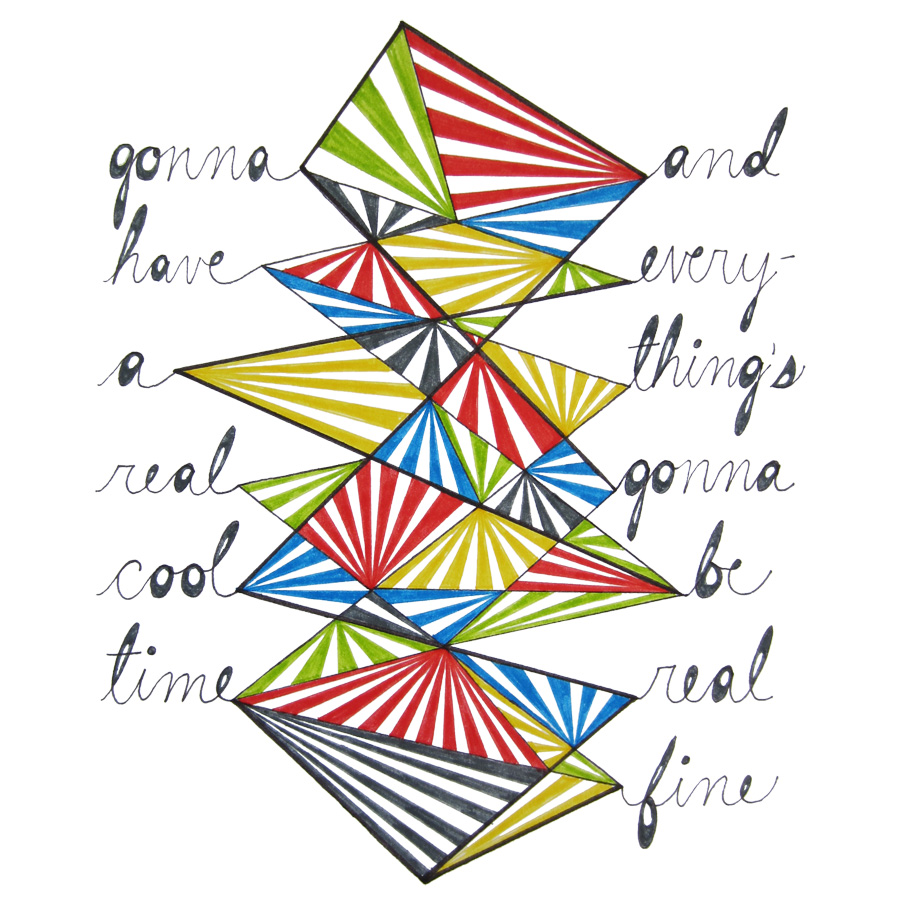 gonna
have
a
real
cool
time
and
every-
thing's
gonna
be
real
fine